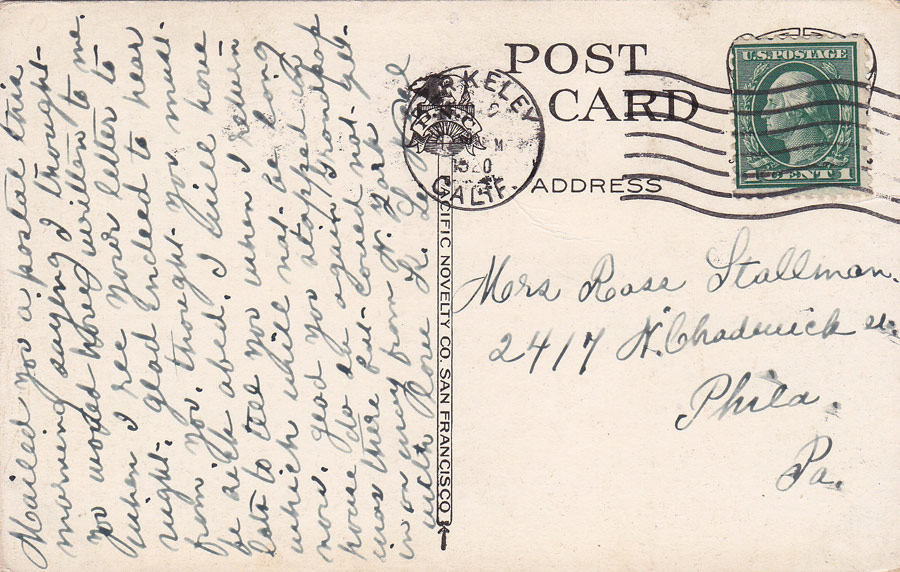 Mailed you a postal this
morning saying I thought
you would have written to me.
when I see your letter to
night. glad indeed to hear
from you. thought you must
be sick abed. I will have
lots to tell you when I return
which will not be long
now. glad you stopped in
house do it again
was there but could not get
in on way from N. York
with love L.
POST
CARD
ADDRESS
BERKELEY
1920
CALIF.
U.S. POSTAGE
CENT 1
Mrs Rose Stallman.
2417 N. Chadwick st.
Phila.
Pa.
PACIFIC NOVELTY CO. SAN FRANCISCO